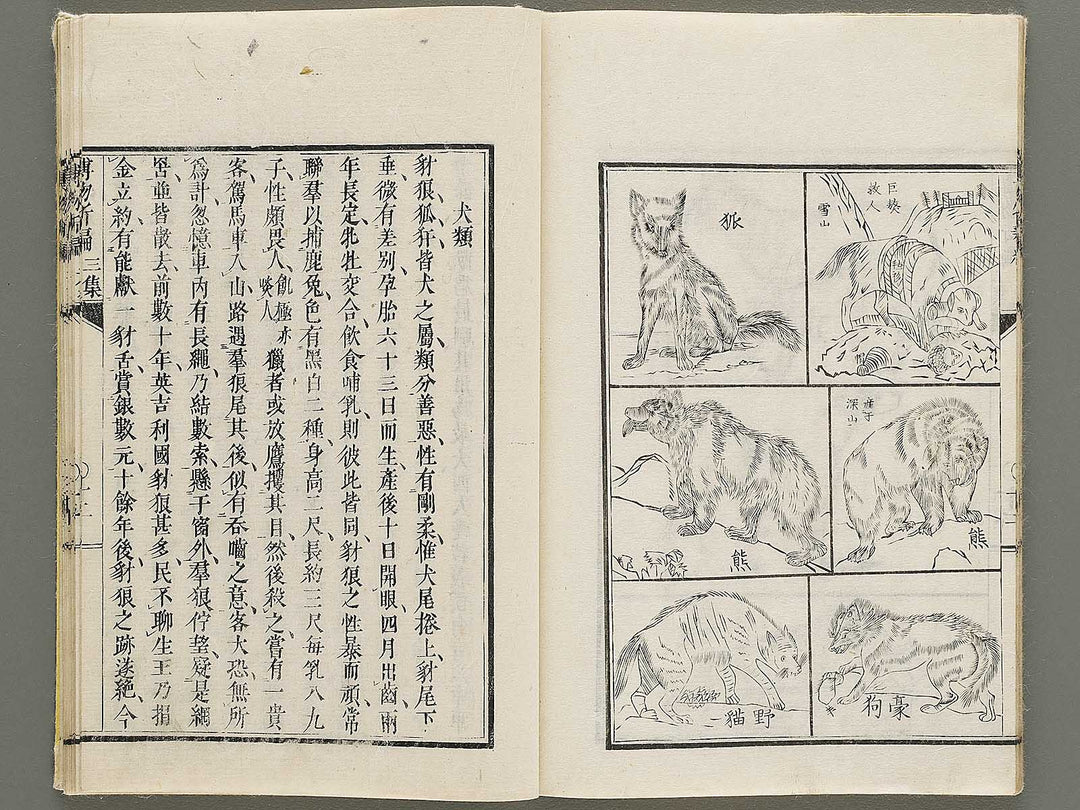 巨獒
救人
雪山
狐
產于
深山
熊
熊
豪狗
野貓
犬類
豺狼狐犴皆犬之屬類分善惡性有剛柔惟犬尾捲上豺尾下
垂微有差別孕胎六十三日而生產後十日開眼四月出齒兩
年長定牝牡交合飲食哺乳則彼此皆同豺狼之性暴而頑常
聯羣以捕鹿兔色有黑白二種身高二尺長約三尺每乳八九
子性頗畏人飢極亦啖人獵者或放鷹攫其目然後殺之嘗有一貴
客駕馬車入山路遇羣狼尾其後似有吞嚙之意客大恐無所
爲計忽憶車內有長繩乃結數索懸于窗外羣狼佇望疑是網
罟並皆散去前數十年英吉利國豺狼甚多民不聊生王乃捐
金立約有能獻一豺舌賞銀數元十餘年後豺狼之跡遂絕今
博物新編 三集